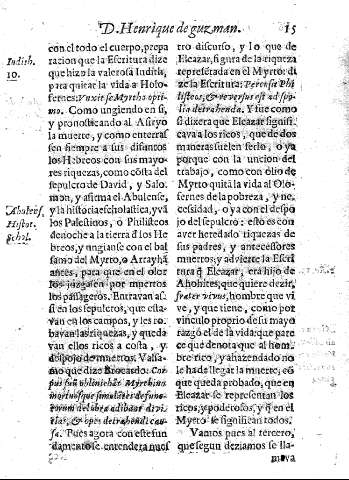 D. Henrique de guzman. 15
Iudith.
10.
con el todo el cuerpo, prepa
racion que la Escritura dize
que hizo la valerosa Iudith,
para quitar la vida a Holo-
fernes: Vnxit se Myrtho opti-
mo. Como ungiendo en si,
y pronosticando al Asiryo
la muerte, y como enterras
sen siempre a sus difuntos
los Hebreos con sus mayo-
res riquezas, como costa del
sepulcro de David, y Salo-
mon, y afirma el Abulense,
Hystor.
Schol.
y la historia escholastica, y và
los Palestinos, o Philisteos
de noche a la tierra d los He
breos, y ungianse con el bal
samo del Myrto, o Arrayhã
antes, para que en el olor
los juzgasen por muertos
los pasageros. Entravan as
si en los sepulcros, que esta-
van en los campos, y les ro-
bavan las riquezas, y queda
van ellos ricos a costa, y
despojo de muertos. Valsa-
mo que dize Brocardo: Cor
pus suũ obliniebãt Myrthino
mortuosque simulãtes defunc-
torum
tias, & opes detrahendi cau-
sa. Pues agora con este fun
damento se entendera nues
tro discurso, y lo que de
Eleazar, figura de la riqueza
representada en el Myrto: di
ze la Escritura: Percussit Phi
listeos, & reversus est ad spo-
lia detrahenda. Y fue como
si dixera que Eleazar signifi
cava a los ricos, que de dos
maneras suelen serlo, o ya
porque con la uncion del
trabajo, como con ólio de
Myrto quitã la vida al Olo-
fernes de la pobreza, y ne-
cesidad, o ya con el despo
jo del sepulcro: esto es con
aver heredado riquezas de
sus padres, y antecessores
muertos; y advierte la Escri
tura q̃ Eleazar, era hijo de
Ahohites, que quiere dezir,
frater vivus, hombre que vi
ve, y que tiene, como por
vinculo proprio de su mayo
razgo el de la vida: que pare
ce que denota que al hom-
bre rico, y ahazendado no
le ha de llegar la muerte, cõ
que queda probado, que en
Eleazar se representan los
ricos, y poderosos, y q̃ en el
Myrto se significan todos.
Vamos pues al tercero,
que segun deziamos se lla-
mava